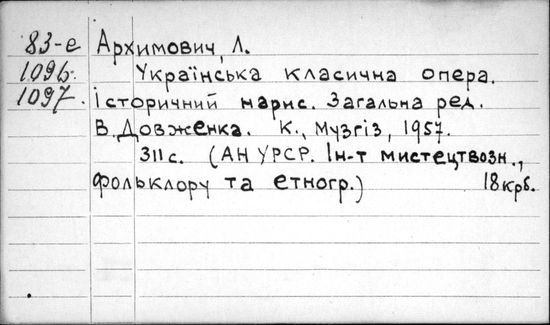 83-е Архимович, Л.
1096. Українська класична опера.
1097. Історичний нарис. Загальна ред.
В. Довженка. К., Музгіз, 1957.
311 с. (АН УРСР. Ін-т мистецтвозн.,
фольклору та етногр.) 18 крб.